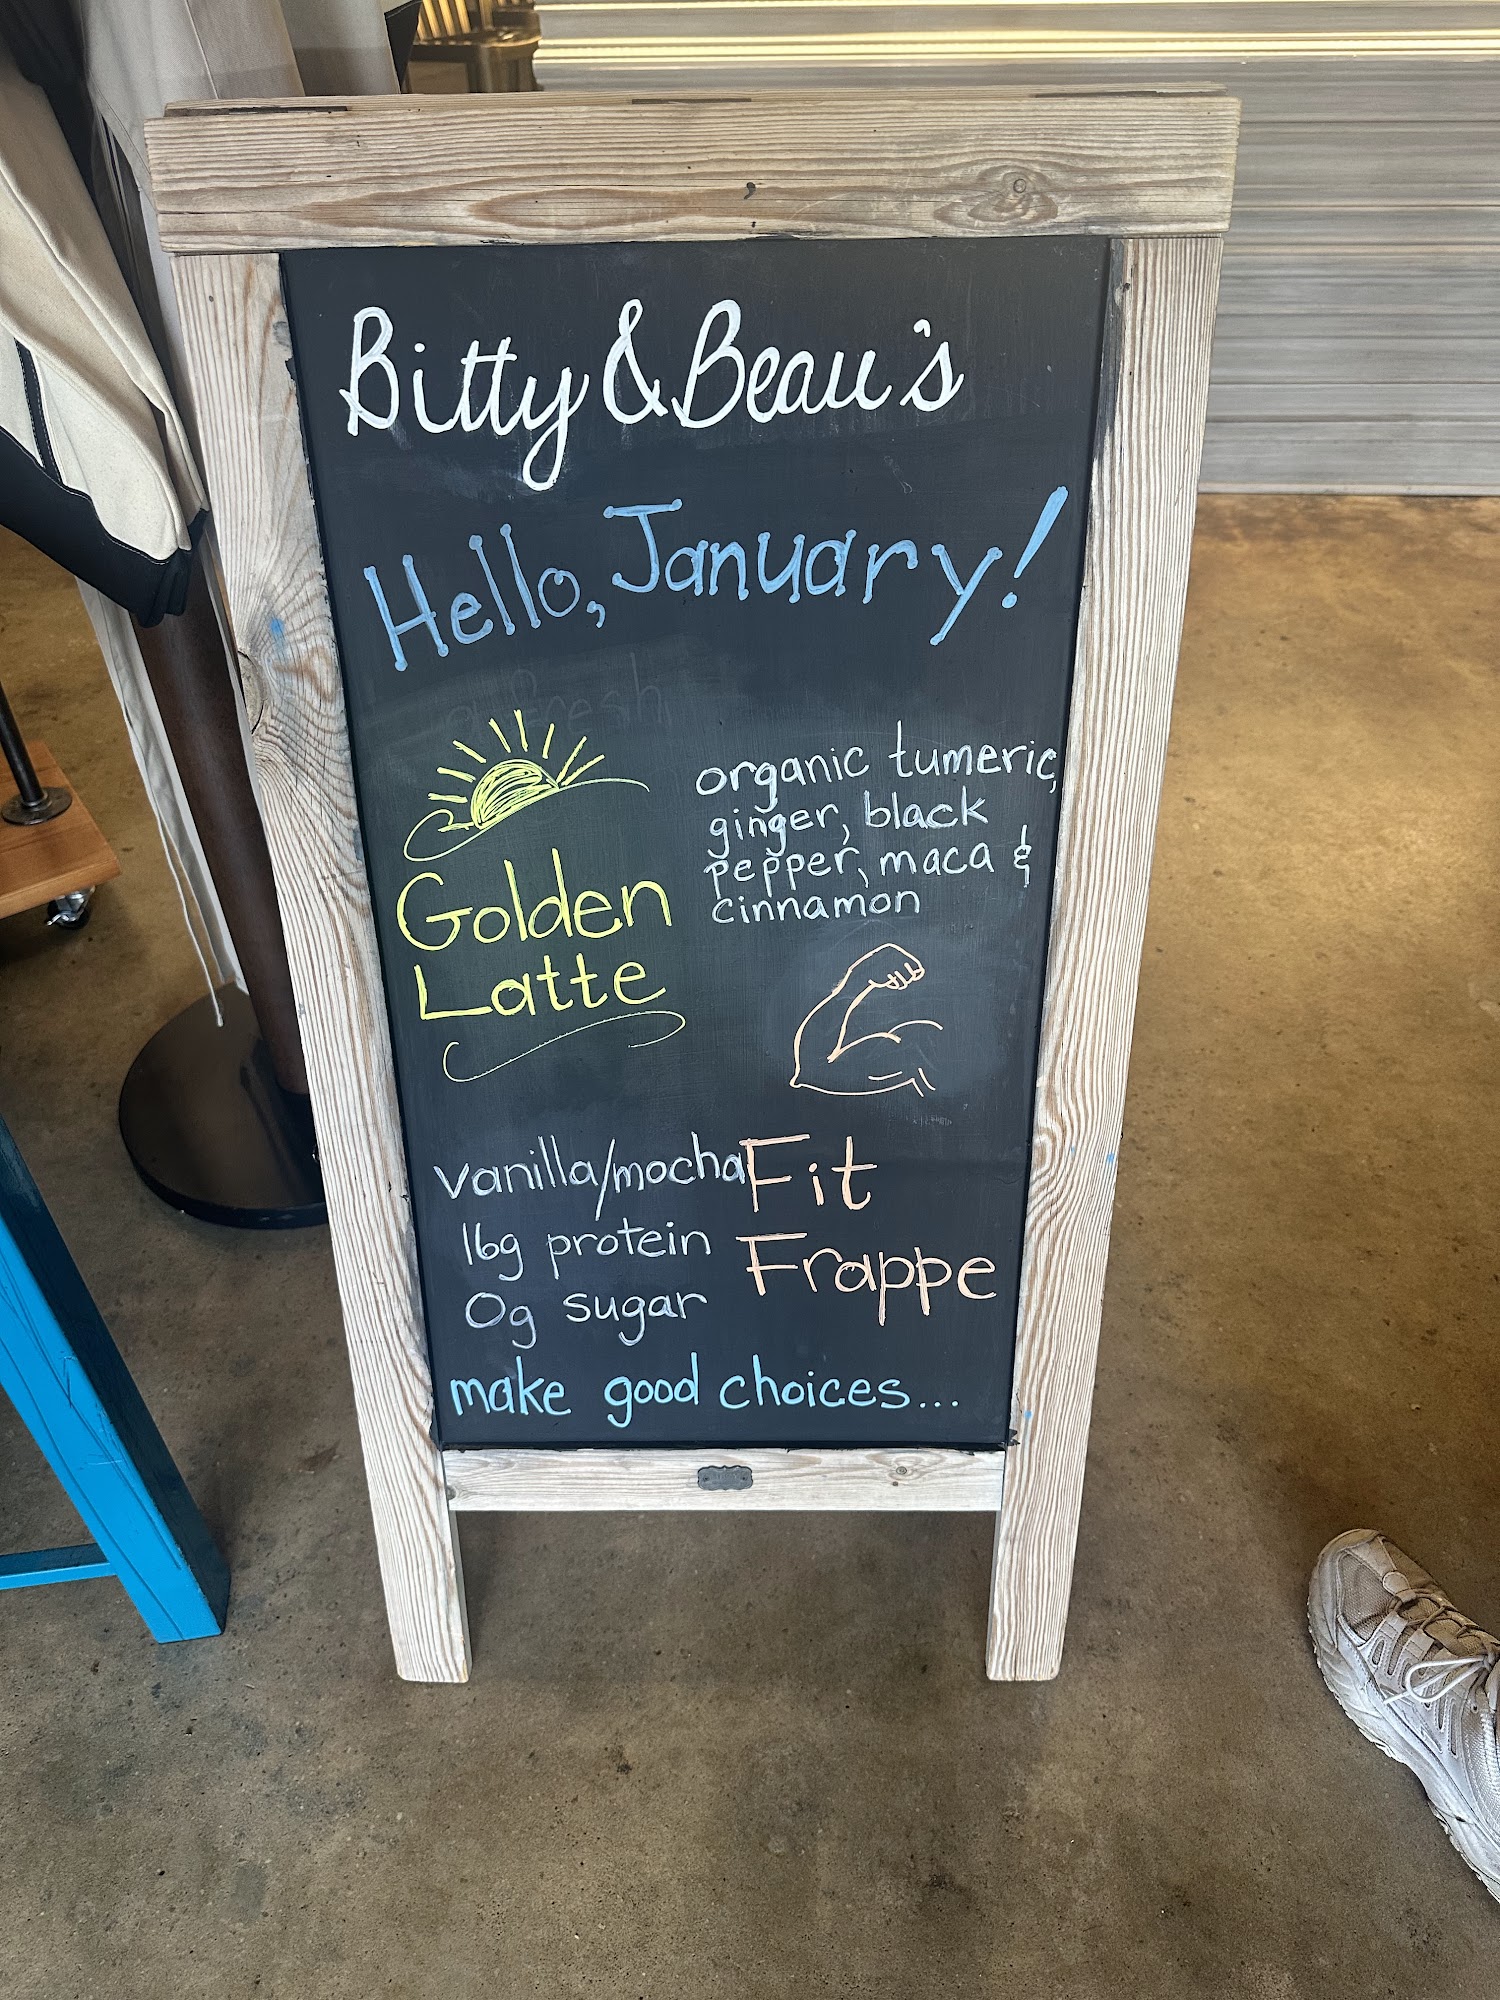 Bitty & Beau's
Hello, January!
organic tumeric,
ginger, black
pepper, maca &
cinnamon
Golden
Latte
vanilla/mocha
16g protein
0g sugar
Fit
Frappe
make good choices...